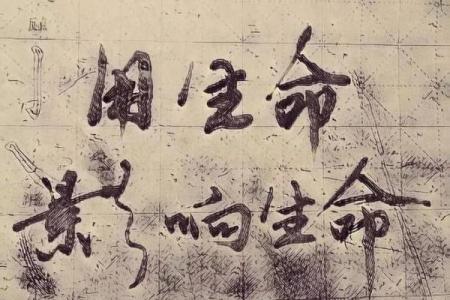 用生命
影响生命